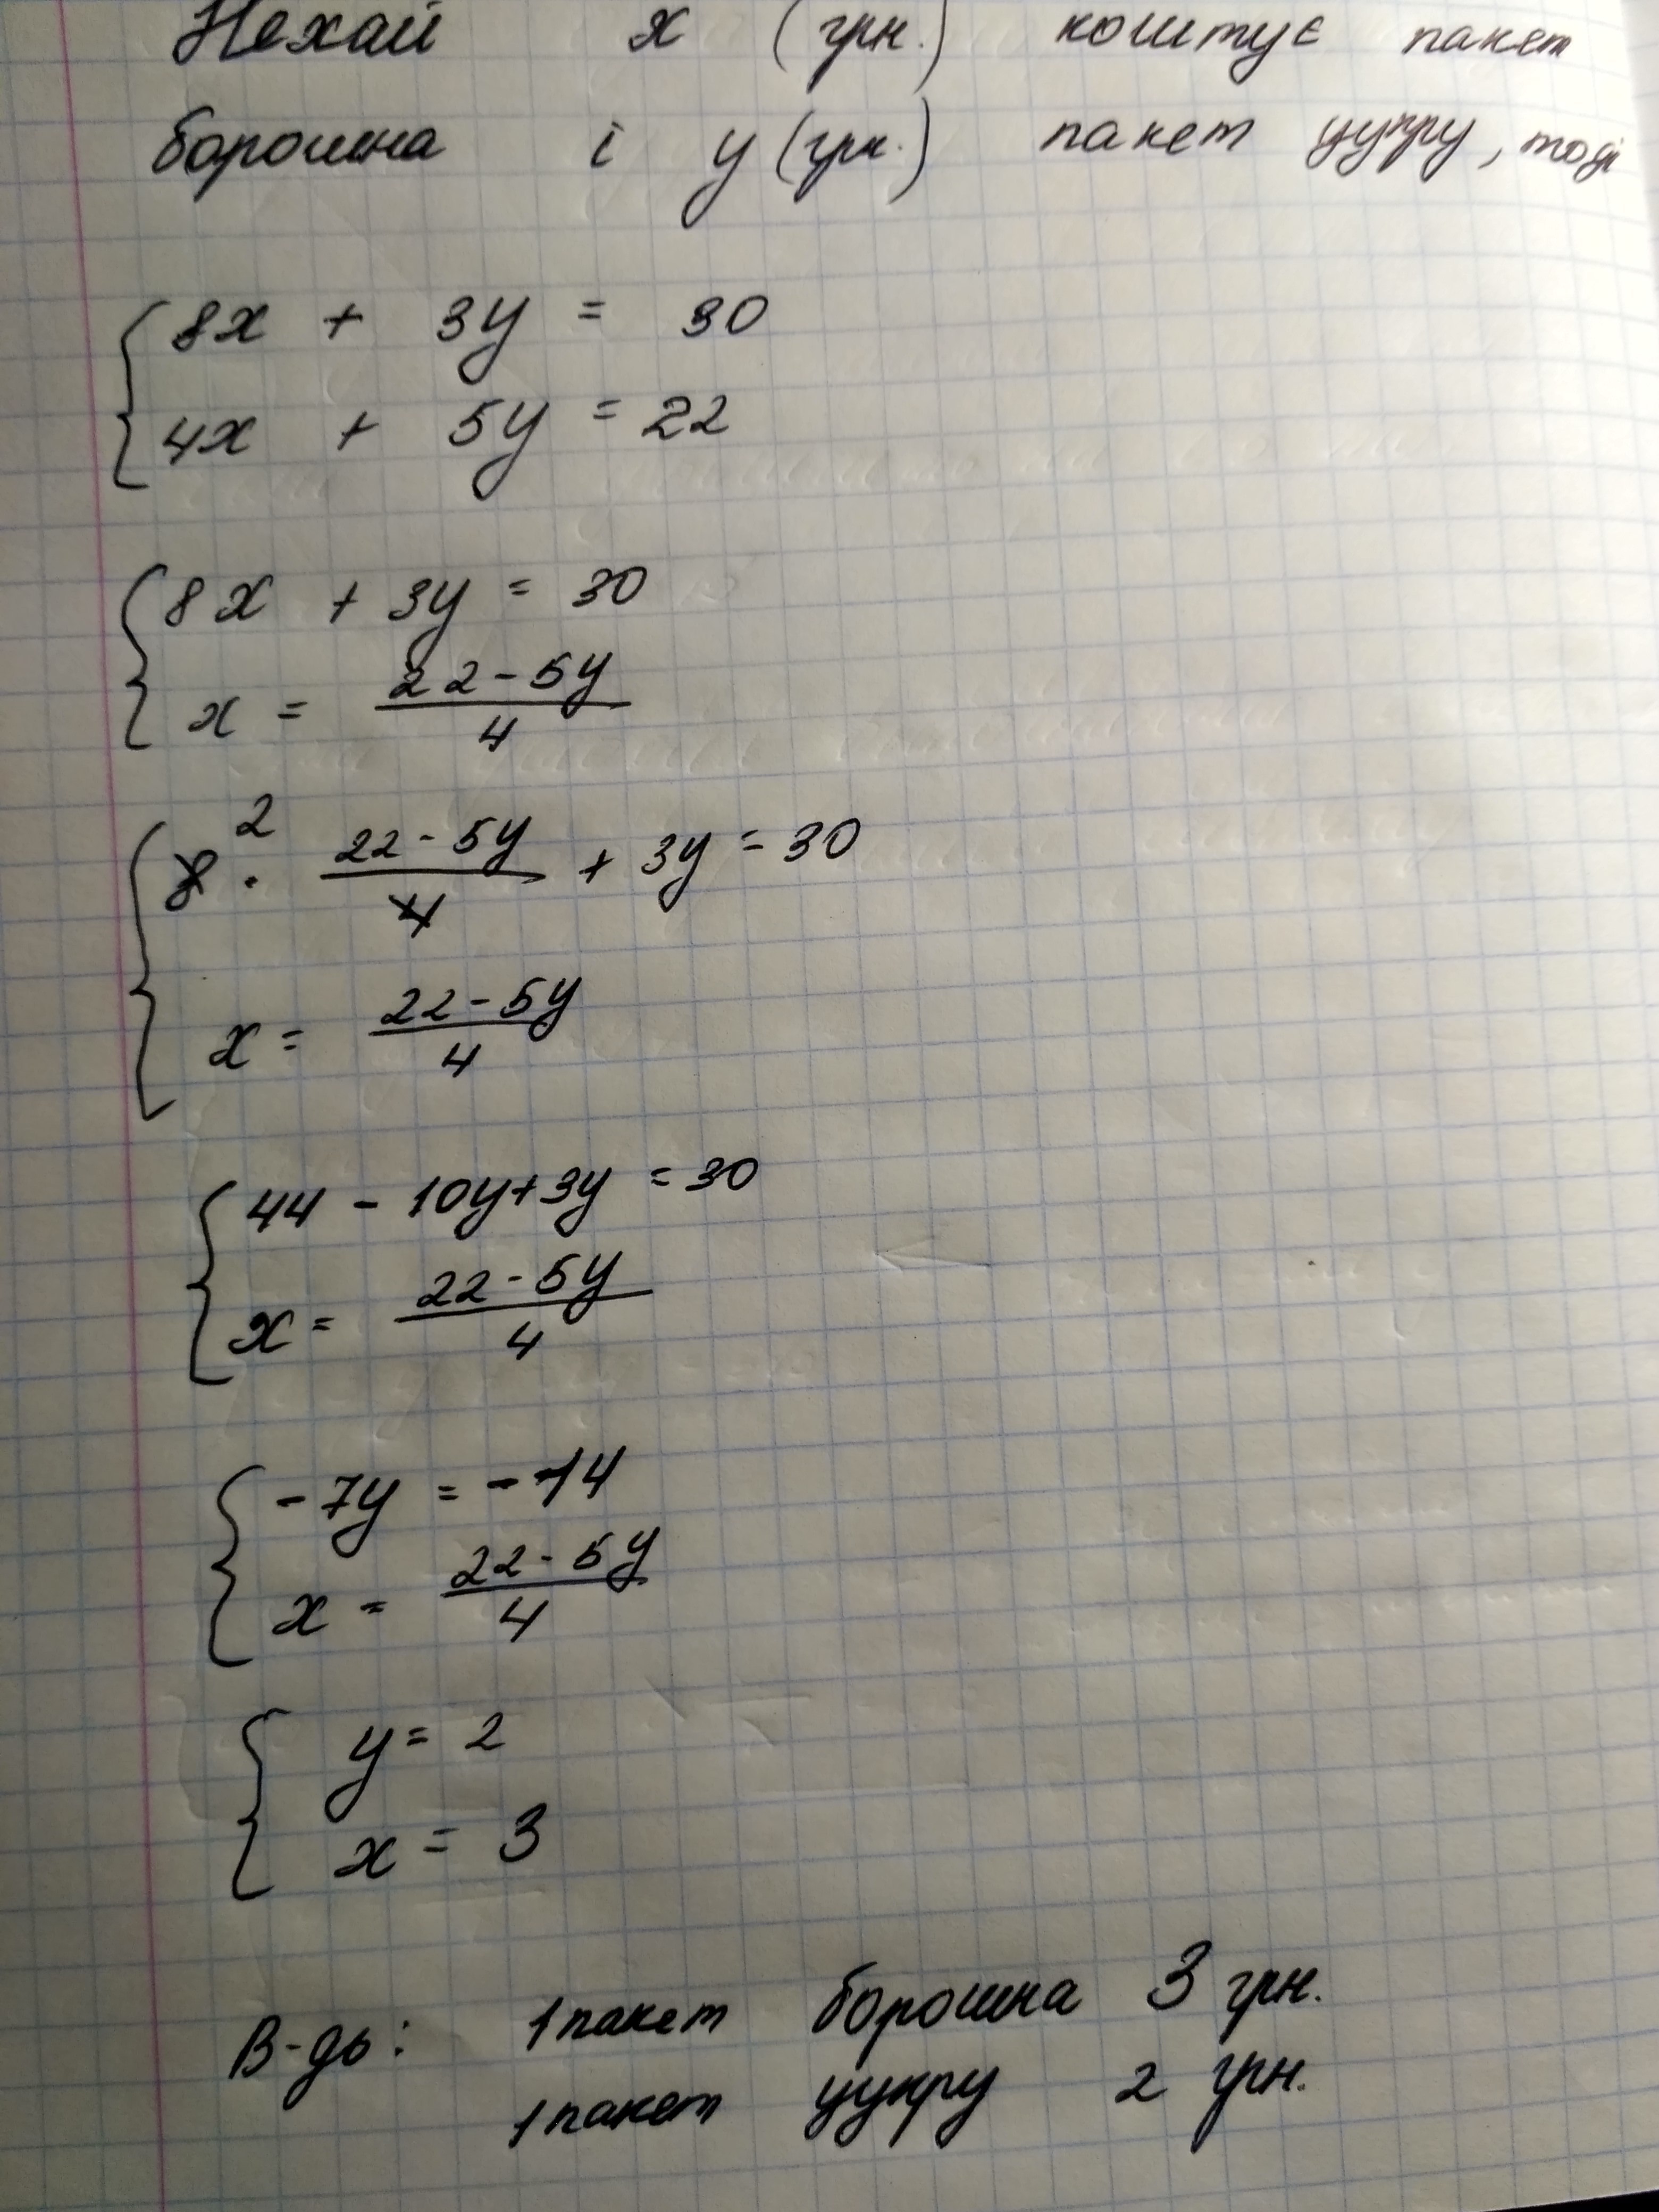 Нехай x (грн.) коштує пакет
борошна і y (грн.) пакет цукру, тоді
8x + 3y = 30
4x + 5y = 22
8x + 3y = 30
x = \frac{22-5y}{4}
8² · \frac{22-5y}{4} + 3y = 30
x = \frac{22-5y}{4}
44 - 10y + 3y = 30
x = \frac{22-5y}{4}
-7y = -14
x = \frac{22-5y}{4}
y = 2
x = 3
В-дь: 1 пакет борошна 3 грн.
1 пакет цукру 2 грн.